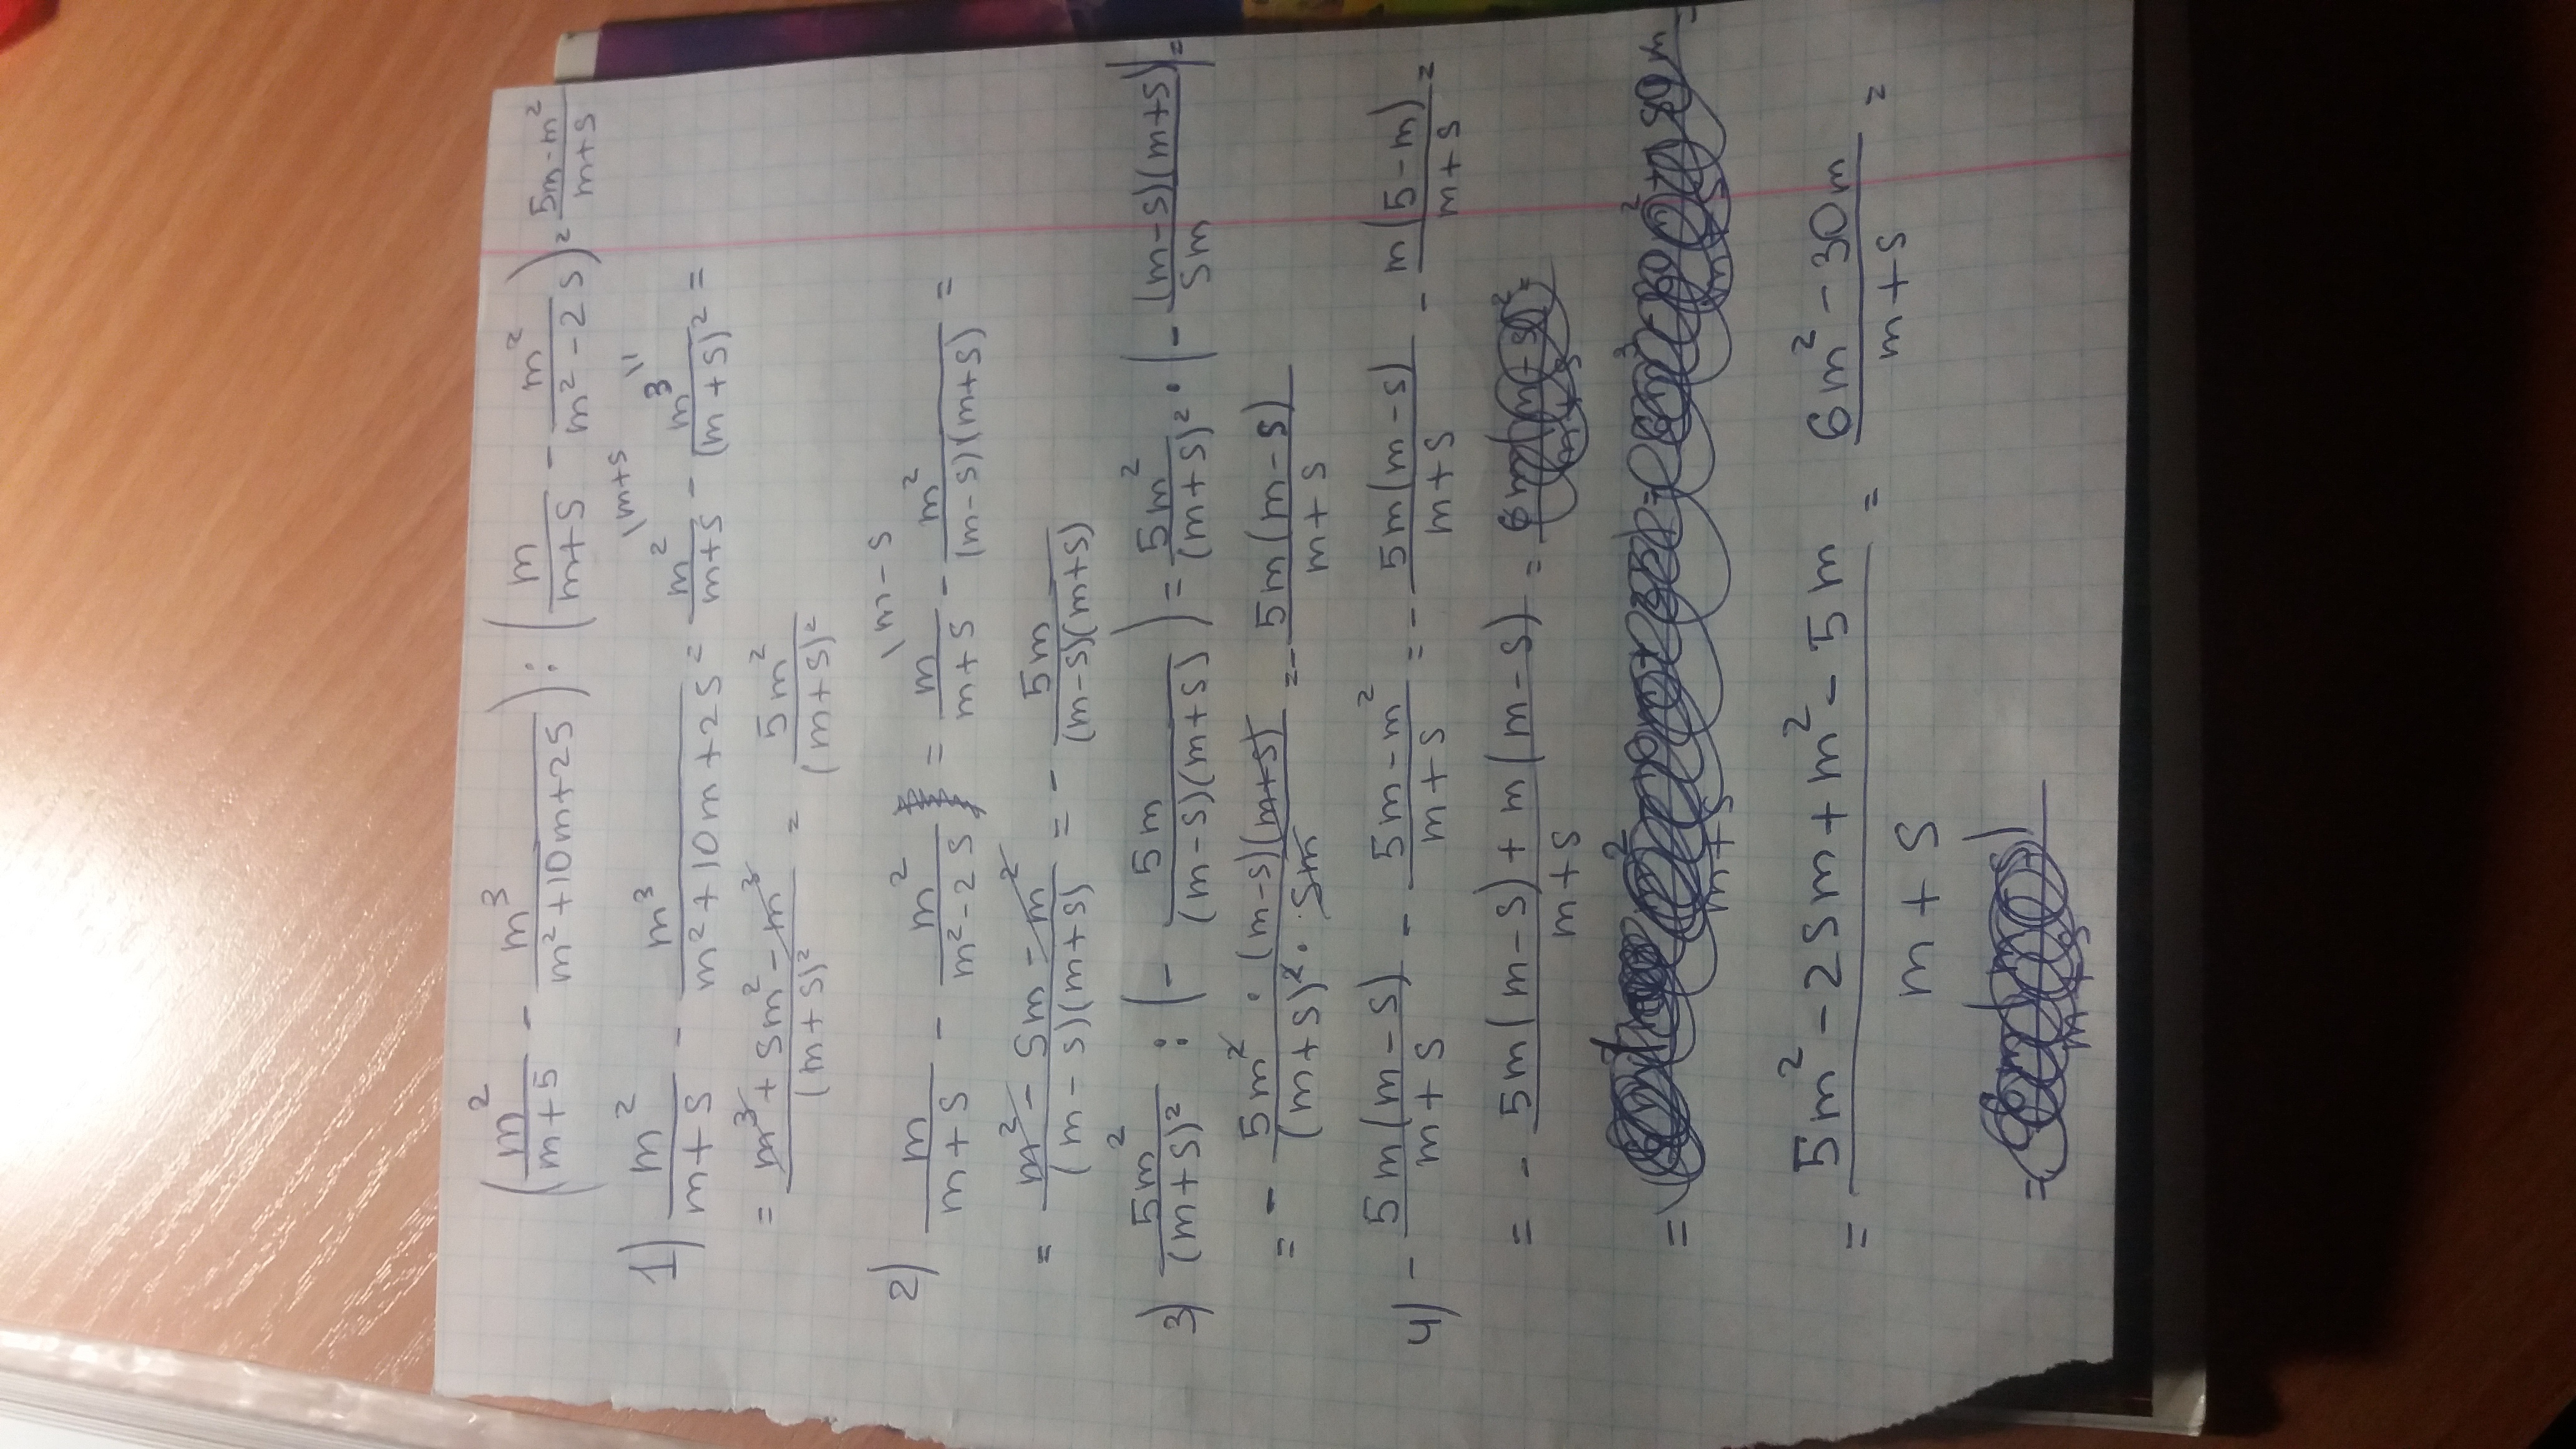 (m²/(m+5) - m³/(m²+10m+25)) : (m/(m+5) - m²/(m²-25)) = (5m-m²)/(m+5)
1) m²/(m+5) - m³/(m²+10m+25) = m²/(m+5) \m+5 - m³/(m+5)² \1 =
= (m³+5m²-m³)/(m+5)² = 5m²/(m+5)²
2) m/(m+5) - m²/(m²-25) = m/(m+5) \m-5 - m²/((m-5)(m+5)) =
= (m²-5m-m²)/((m-5)(m+5)) = - 5m/((m-5)(m+5))
3) 5m²/(m+5)² : (- 5m/((m-5)(m+5))) = 5m²/(m+5)² · (- (m-5)(m+5)/5m) =
= - (5m² · (m-5)(m+5))/((m+5)² · 5m) = - 5m(m-5)/(m+5)
4) - 5m(m-5)/(m+5) - (5m-m²)/(m+5) = - 5m(m-5)/(m+5) - m(5-m)/(m+5) =
= - (5m(m-5)+m(m-5))/(m+5) =
= (5m²-25m+m²-5m)/(m+5) = (6m²-30m)/(m+5) =
=